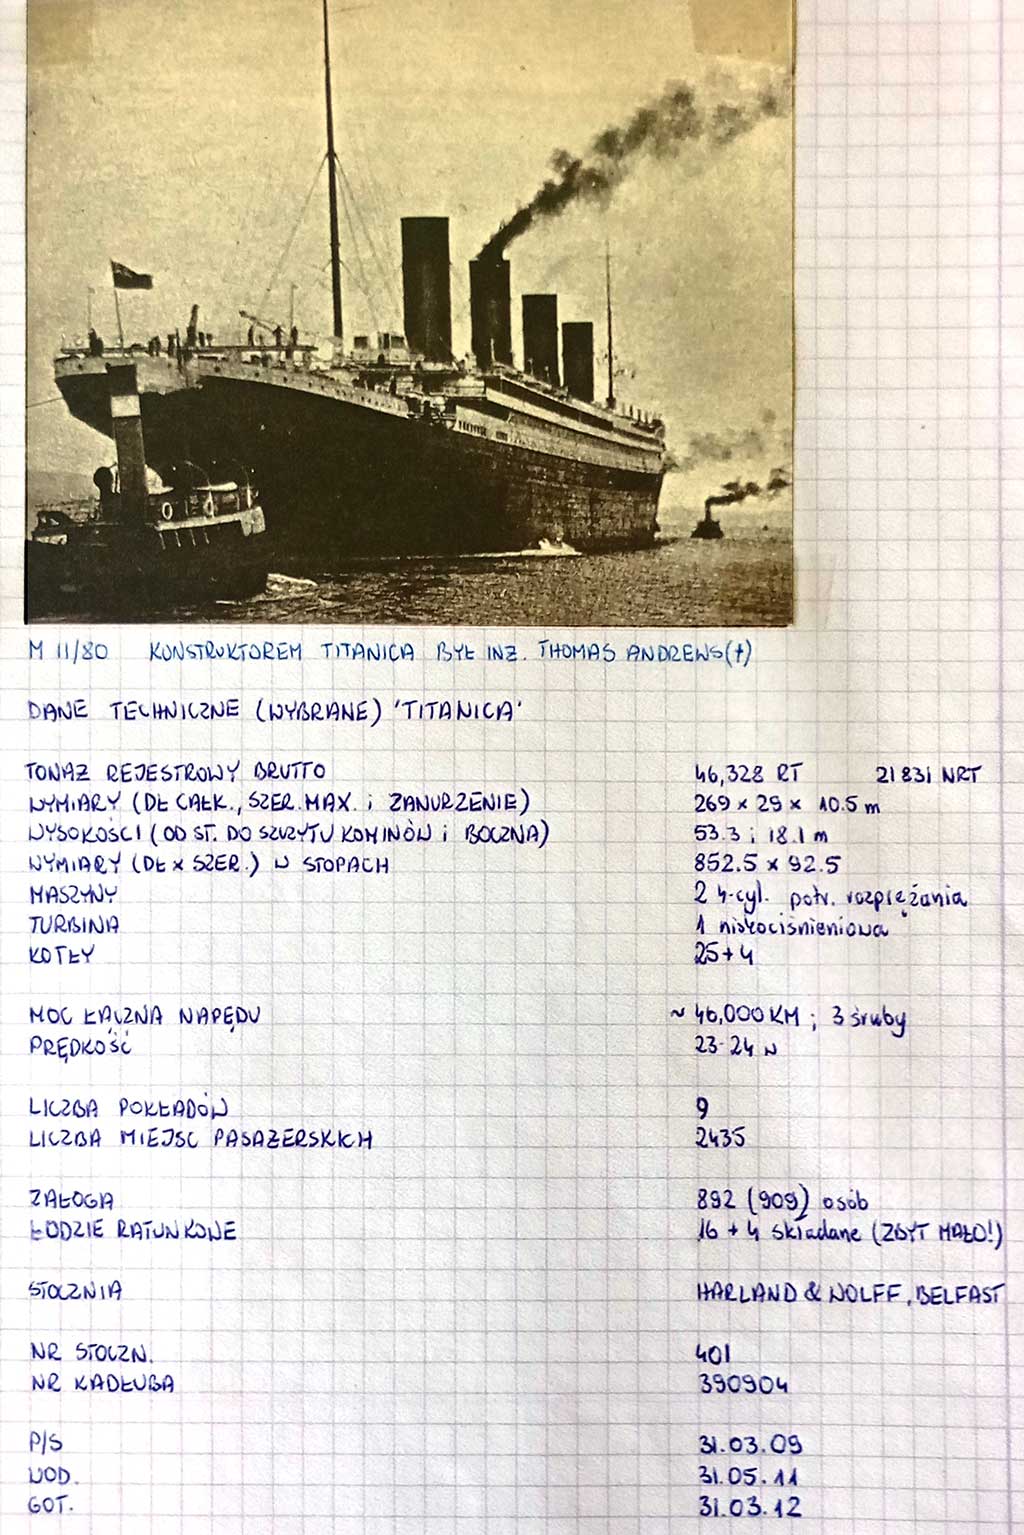 M 11/80 KONSTRUKTOREM TITANICA BYŁ INŻ. THOMAS ANDREWS(†)
DANE TECHNICZNE (WYBRANE) 'TITANICA'
TONAŻ REJESTROWY BRUTTO 46,328 RT 21831 NRT
WYMIARY (DŁ CAŁK., SZER. MAX. i ZANURZENIE) 269 × 29 × 10.5 m
WYSOKOŚCI (OD ST. DO SZCZYTU KOMINÓW i BOCZNA) 53.3 i 18.1 m
WYMIARY (DŁ × SZER.) W STOPACH 852.5 × 92.5
MASZYNY 2 4-cyl. potr. rozprężania
TURBINA 1 niskociśnieniowa
KOTŁY 25+4
MOC ŁĄCZNA NAPĘDU ~ 46,000 KM ; 3 śruby
PRĘDKOŚĆ 23-24 w
LICZBA POKŁADÓW 9
LICZBA MIEJSC PASAŻERSKICH 2435
ZAŁOGA 892 (909) osób
ŁODZIE RATUNKOWE 16 + 4 składane (ZBYT MAŁO!)
STOCZNIA HARLAND & WOLFF, BELFAST
NR STOCZN. 401
NR KADŁUBA 390904
P/S 31.03.09
WOD. 31.05.11
GOT. 31.03.12